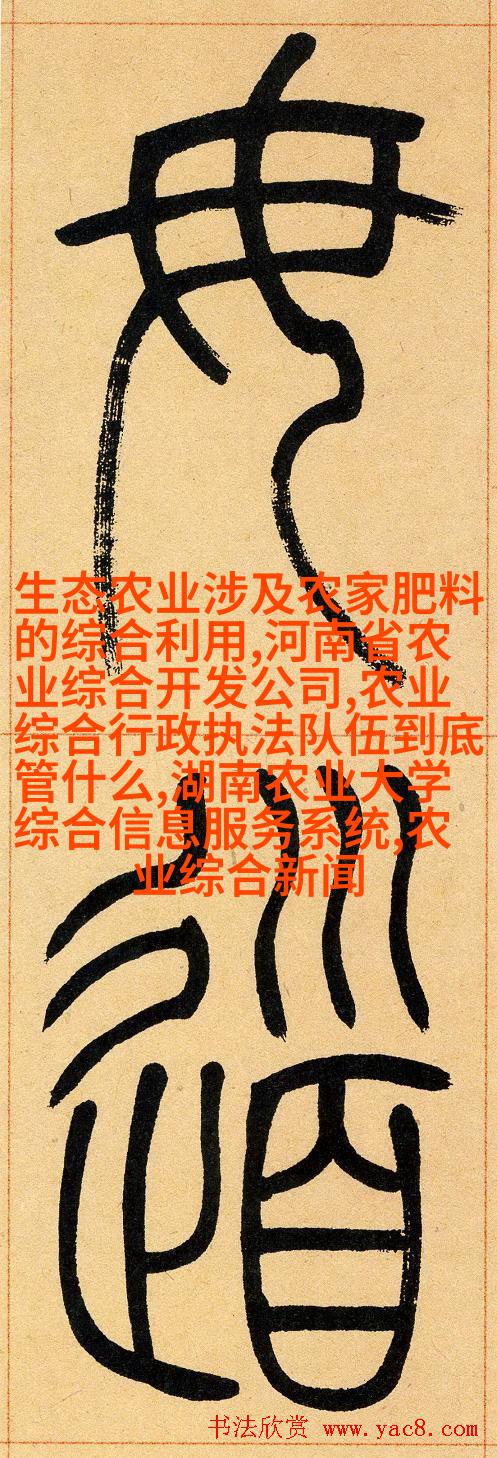 毋
道
生态农业涉及农家肥料
的综合利用,河南省农
业综合开发公司,农业
综合行政执法队伍到底
管什么,湖南农业大学
综合信息服务系统,农
业综合新闻
书法欣赏 www.yac8.com